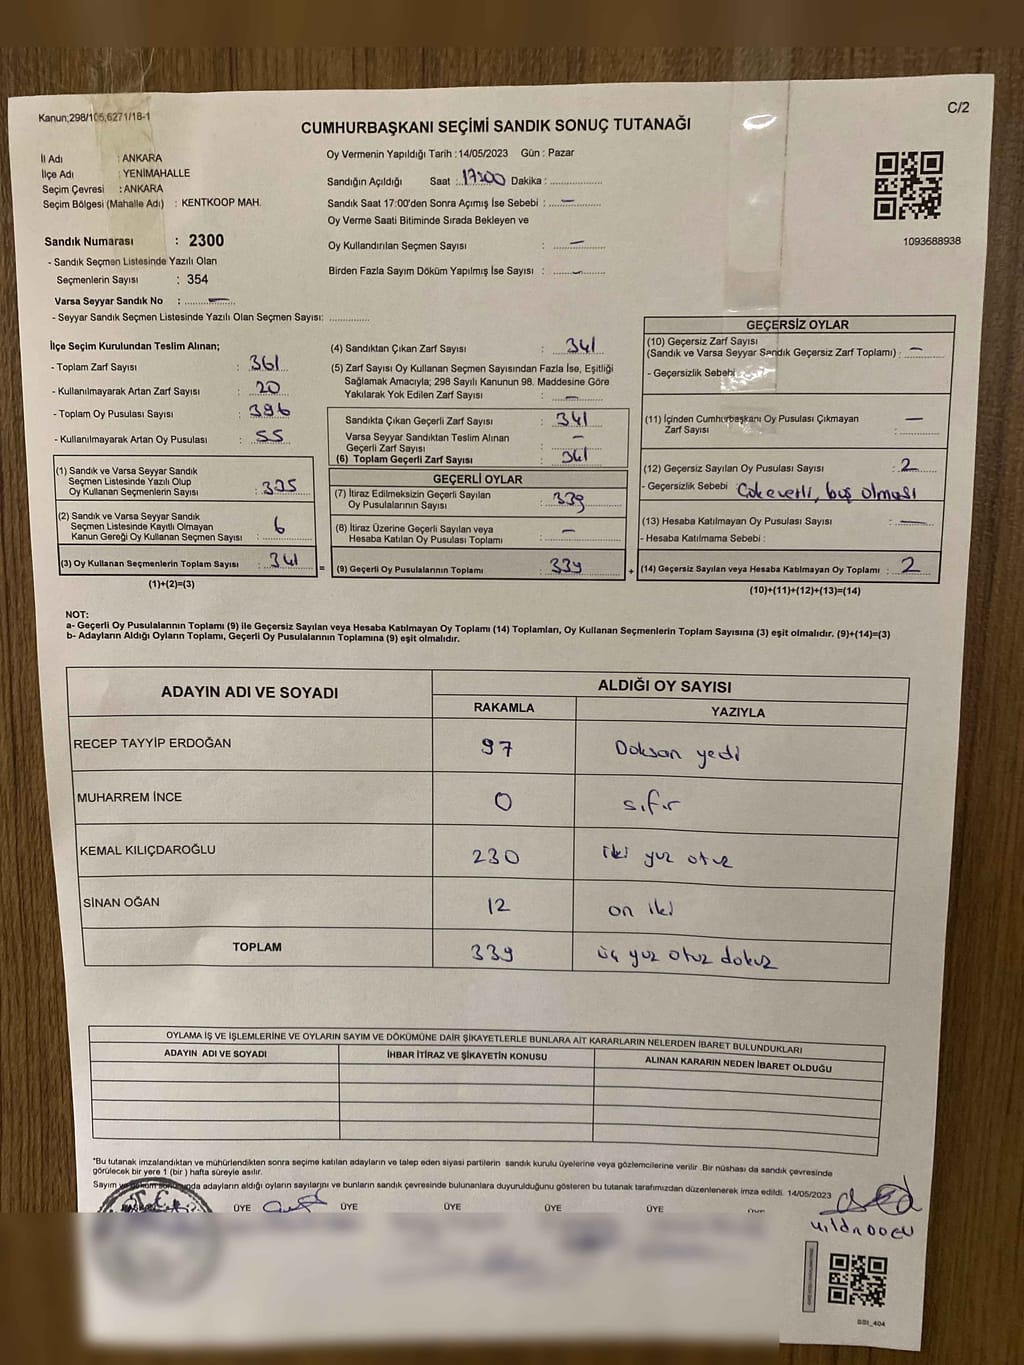 Kanun;298/105,6271/18-1
C/2
CUMHURBAŞKANI SEÇİMİ SANDIK SONUÇ TUTANAĞI
İl Adı : ANKARA
İlçe Adı : YENİMAHALLE
Seçim Çevresi : ANKARA
Seçim Bölgesi (Mahalle Adı) : KENTKOOP MAH.
Sandık Numarası : 2300
- Sandık Seçmen Listesinde Yazılı Olan
Seçmenlerin Sayısı : 354
Varsa Seyyar Sandık No : —
- Seyyar Sandık Seçmen Listesinde Yazılı Olan Seçmen Sayısı: ..............
Oy Vermenin Yapıldığı Tarih : 14/05/2023 Gün : Pazar
Sandığın Açıldığı Saat : 17:00 Dakika : ..................
Sandık Saat 17:00'den Sonra Açımış İse Sebebi : —
Oy Verme Saati Bitiminde Sırada Bekleyen ve
Oy Kullandırılan Seçmen Sayısı : —
Birden Fazla Sayım Döküm Yapılmış İse Sayısı : —
1093688938
İlçe Seçim Kurulundan Teslim Alınan;
- Toplam Zarf Sayısı : 361
- Kullanılmayarak Artan Zarf Sayısı : 20
- Toplam Oy Pusulası Sayısı : 396
- Kullanılmayarak Artan Oy Pusulası : 55
(1) Sandık ve Varsa Seyyar Sandık
Seçmen Listesinde Yazılı Olup
Oy Kullanan Seçmenlerin Sayısı : 335
(2) Sandık ve Varsa Seyyar Sandık
Seçmen Listesinde Kayıtlı Olmayan
Kanun Gereği Oy Kullanan Seçmen Sayısı : 6
(3) Oy Kullanan Seçmenlerin Toplam Sayısı : 341
(1)+(2)=(3)
(4) Sandıktan Çıkan Zarf Sayısı : 341
(5) Zarf Sayısı Oy Kullanan Seçmen Sayısından Fazla İse, Eşitliği
Sağlamak Amacıyla; 298 Sayılı Kanunun 98. Maddesine Göre
Yakılarak Yok Edilen Zarf Sayısı : —
Sandıkta Çıkan Geçerli Zarf Sayısı : 341
Varsa Seyyar Sandıktan Teslim Alınan
Geçerli Zarf Sayısı : —
(6) Toplam Geçerli Zarf Sayısı : 341
GEÇERLİ OYLAR
(7) İtiraz Edilmeksizin Geçerli Sayılan
Oy Pusulalarının Sayısı : 339
(8) İtiraz Üzerine Geçerli Sayılan veya
Hesaba Katılan Oy Pusulası Toplamı : —
= (9) Geçerli Oy Pusulalarının Toplamı : 339
GEÇERSİZ OYLAR
(10) Geçersiz Zarf Sayısı
(Sandık ve Varsa Seyyar Sandık Geçersiz Zarf Toplamı) : —
- Geçersizlik Sebebi
(11) İçinden Cumhurbaşkanı Oy Pusulası Çıkmayan
Zarf Sayısı : —
(12) Geçersiz Sayılan Oy Pusulası Sayısı : 2
- Geçersizlik Sebebi : Çok everli, boş olması
(13) Hesaba Katılmayan Oy Pusulası Sayısı : —
- Hesaba Katılmama Sebebi :
+ (14) Geçersiz Sayılan veya Hesaba Katılmayan Oy Toplamı : 2
(10)+(11)+(12)+(13)=(14)
NOT:
a- Geçerli Oy Pusulalarının Toplamı (9) ile Geçersiz Sayılan veya Hesaba Katılmayan Oy Toplamı (14) Toplamları, Oy Kullanan Seçmenlerin Toplam Sayısına (3) eşit olmalıdır. (9)+(14)=(3)
b- Adayların Aldığı Oyların Toplamı, Geçerli Oy Pusulalarının Toplamına (9) eşit olmalıdır.
ADAYIN ADI VE SOYADI ALDIĞI OY SAYISI
RAKAMLA YAZIYLA
RECEP TAYYİP ERDOĞAN 97 Doksan yedi
MUHARREM İNCE 0 sıfır
KEMAL KILIÇDAROĞLU 230 iki yuz otuz
SİNAN OĞAN 12 on iki
TOPLAM 339 üç yuz otuz dokuz
OYLAMA İŞ VE İŞLEMLERİNE VE OYLARIN SAYIM VE DÖKÜMÜNE DAİR ŞİKAYETLERLE BUNLARA AİT KARARLARIN NELERDEN İBARET BULUNDUKLARI
ADAYIN ADI VE SOYADI İHBAR İTİRAZ VE ŞİKAYETİN KONUSU ALINAN KARARIN NEDEN İBARET OLDUĞU
*Bu tutanak imzalandıktan ve mühürlendikten sonra seçime katılan adayların ve talep eden siyasi partilerin sandık kurulu üyelerine veya gözlemcilerine verilir .Bir nüshası da sandık çevresinde
görülecek bir yere 1 (bir ) hafta süreyle asılır.
Sayım ve döküm sonucunda adayların aldığı oyların sayılarını ve bunların sandık çevresinde bulunanlara duyurulduğunu gösteren bu tutanak tarafımızdan düzenlenerek imza edildi. 14/05/2023
ÜYE ÜYE ÜYE ÜYE ÜYE
BBI_404